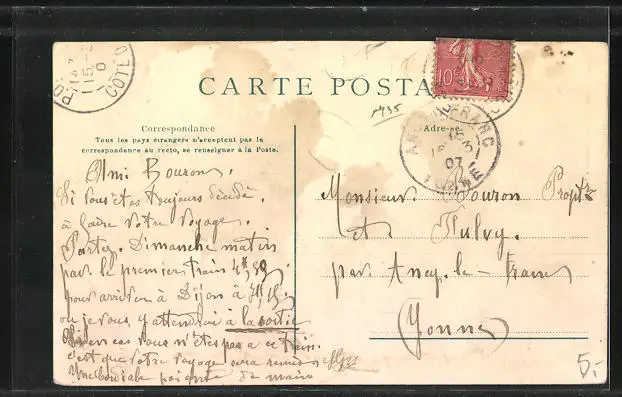 CARTE POSTA
Correspondance
Tous les pays étrangers n'acceptent pas la
correspondance au recto, se renseigner à la Poste.
Adresse
10
1435
ANCY-LE-FRANC
15
07
YONNE
CÔTE D'O
Ami Bouron.
Si vous êtes toujours décidé
à faire votre voyage.
Partez. Dimanche matin
par le premier train 4h,59
pour arriver à Dijon à 7h
où je vous y attendrai à la sortie
en cas vous n'êtes pas à ce train.
c'est que votre voyage sera remis
Une cordiale poignée de main
Monsieur Bouron Proptre
et Fulvy.
par Ancy-le-Franc
Yonne
5.-